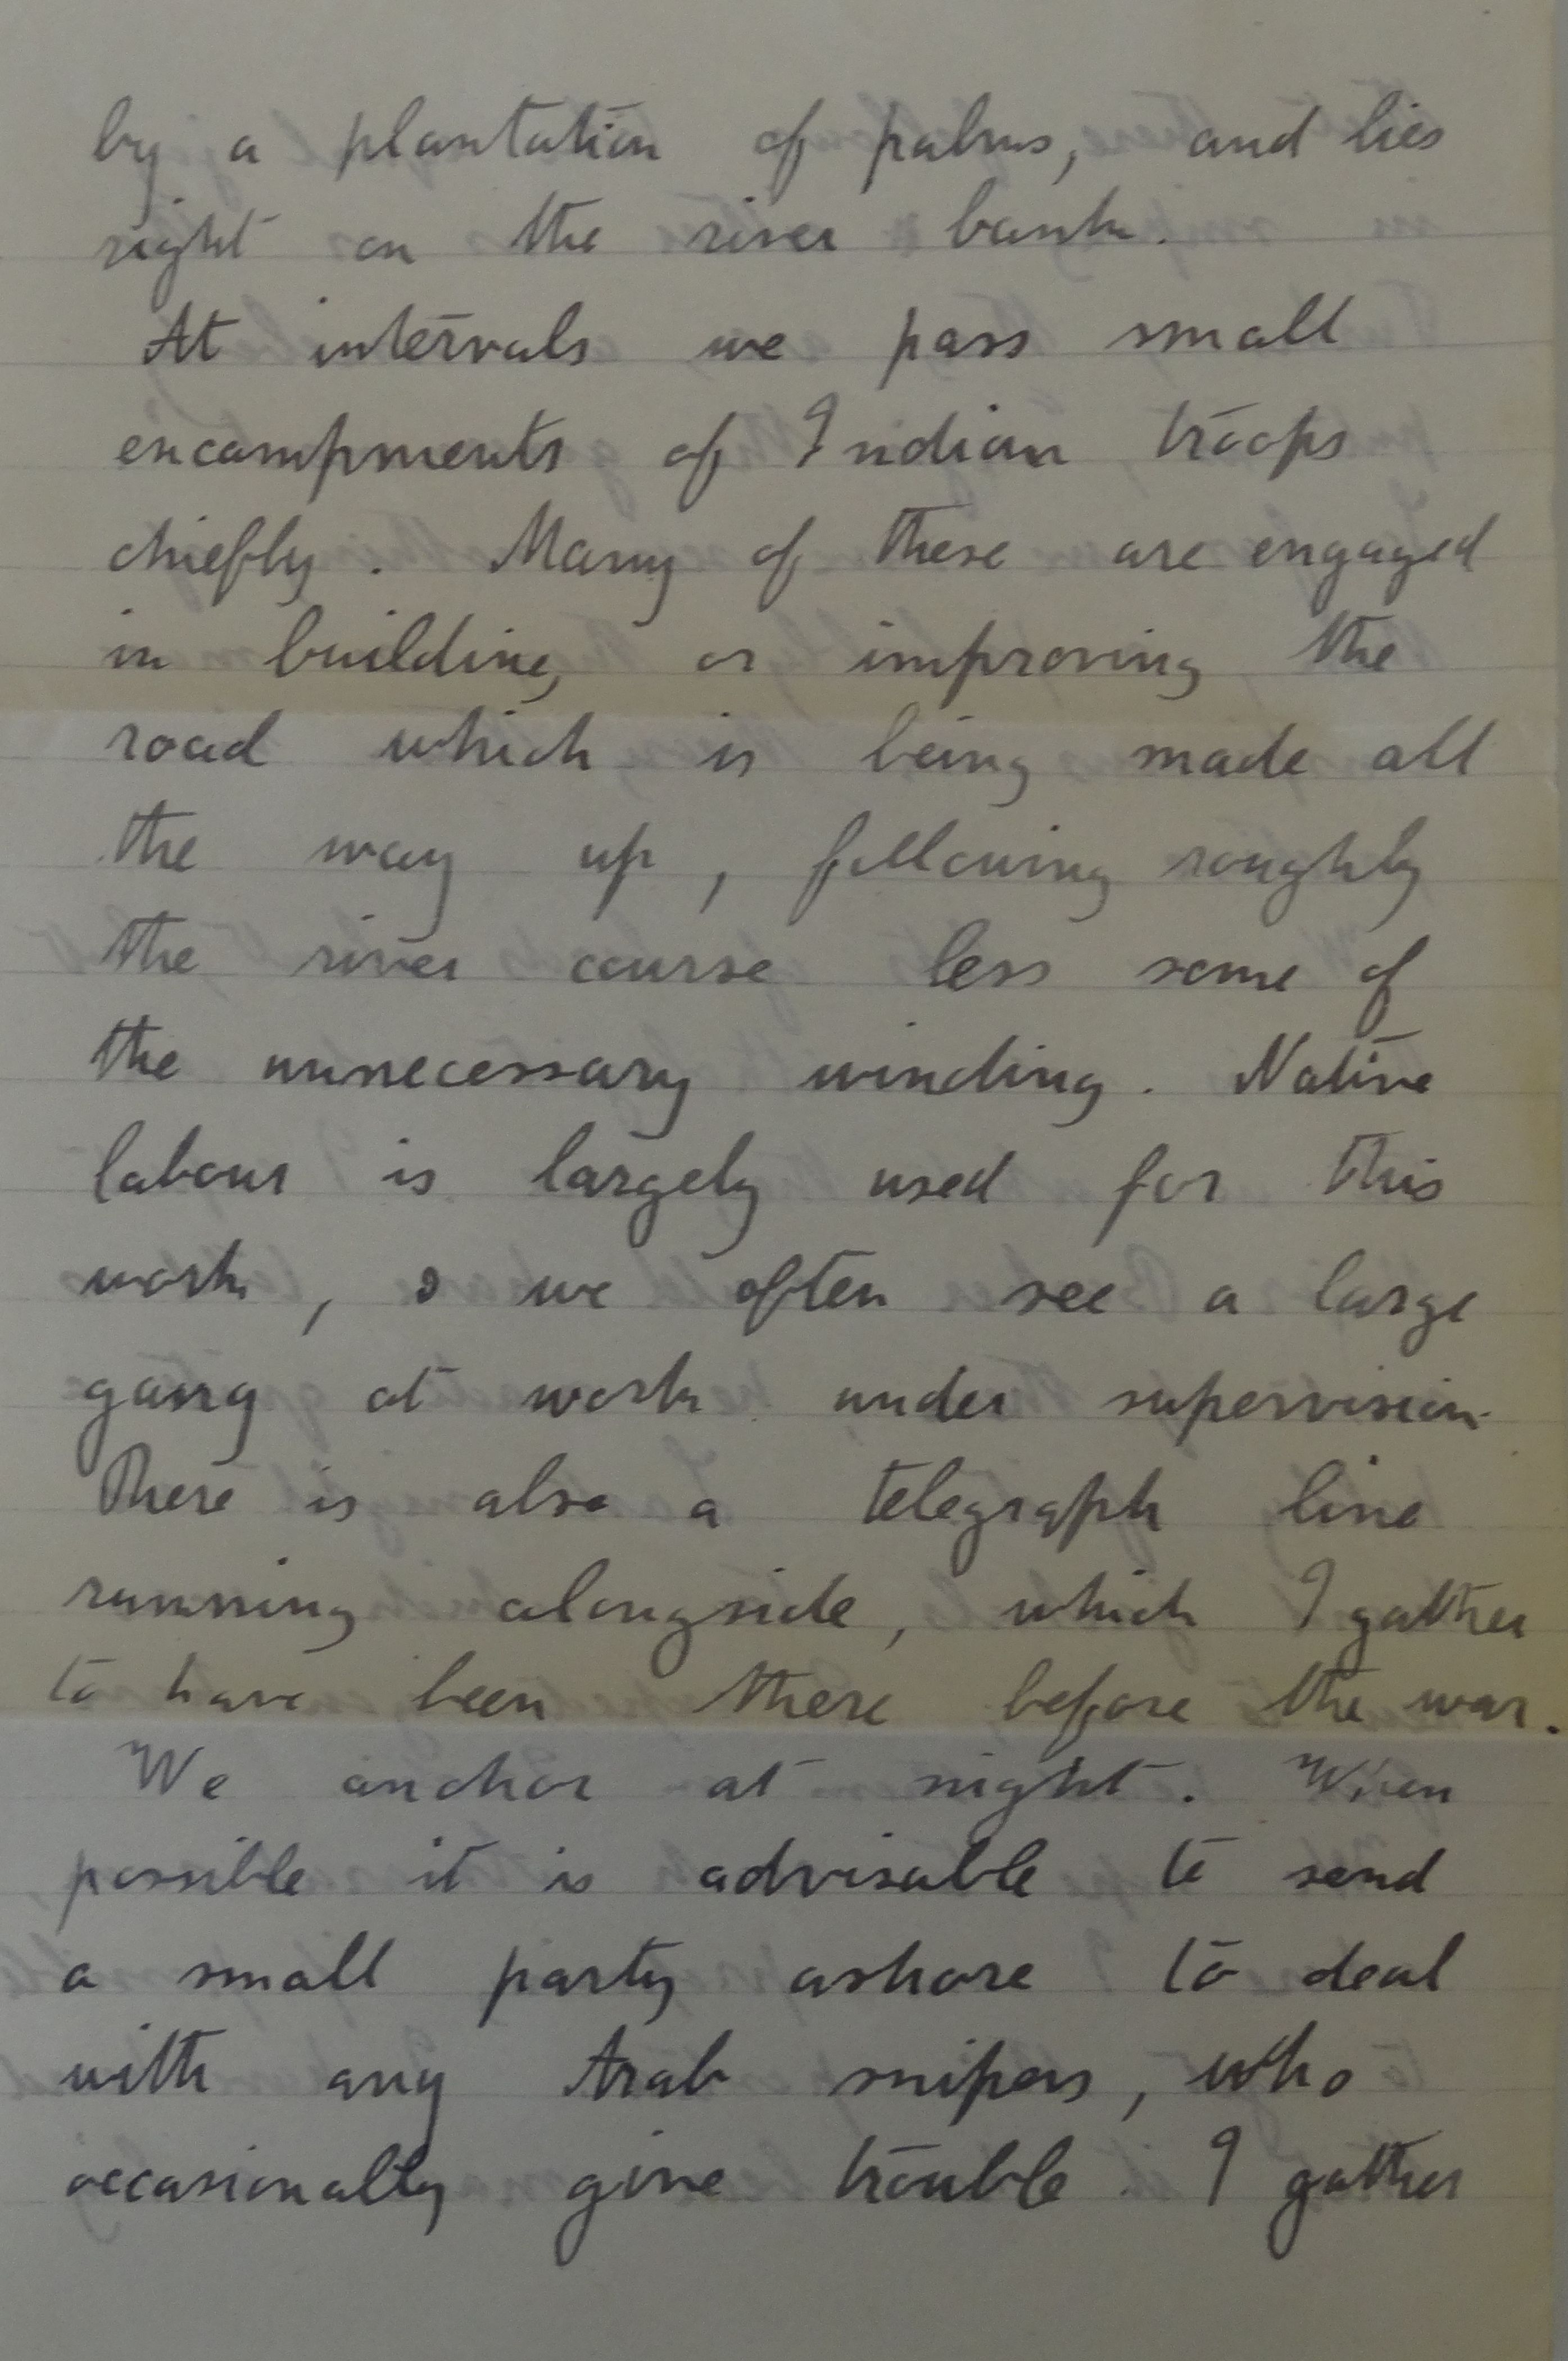 by a plantation of palms, and lies
right on the river bank.
At intervals we pass small
encampments of Indian troops
chiefly. Many of these are engaged
in building, or improving the
road which is being made all
the way up, following roughly
the river course less some of
the unnecessary winding. Native
labour is largely used for this
work, & we often see a large
gang at work under supervision.
There is also a telegraph line
running alongside, which I gather
to have been there before the war.
We anchor at night. When
possible it is advisable to send
a small party ashore to deal
with any Arab snipers, who
occasionally give trouble. I gather